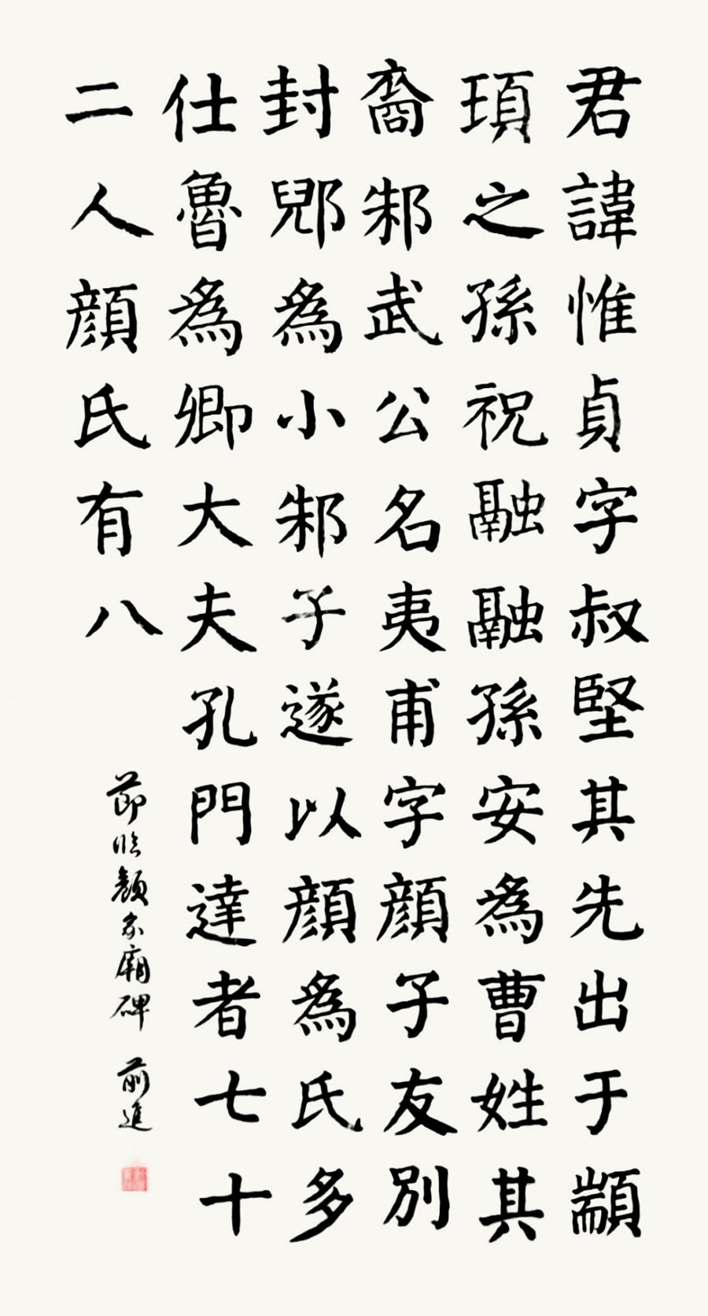 君諱惟貞字叔堅其先出于顓
頊之孫祝融融孫安為曹姓其
裔邾武公名夷甫字顏子友別
封郳為小邾子遂以顏為氏多
仕魯為卿大夫孔門達者七十
二人顏氏有八
節臨顏家廟碑 前進